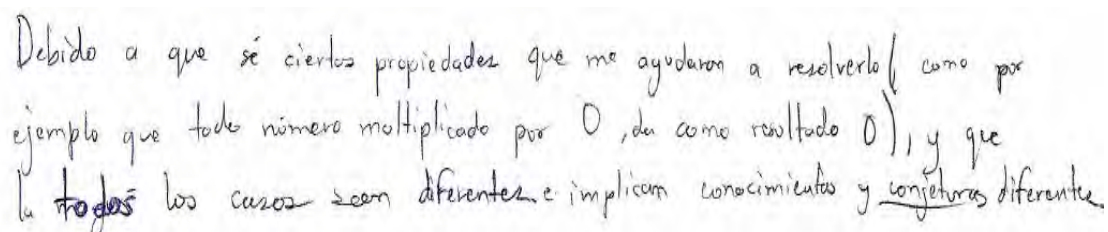 Debido a que sé ciertas propiedades que me ayudaron a resolverlo (como por
ejemplo que todo número multiplicado por 0, da como resultado 0), y que
la todos los casos sean diferentes e implican conocimientos y conjeturas diferentes